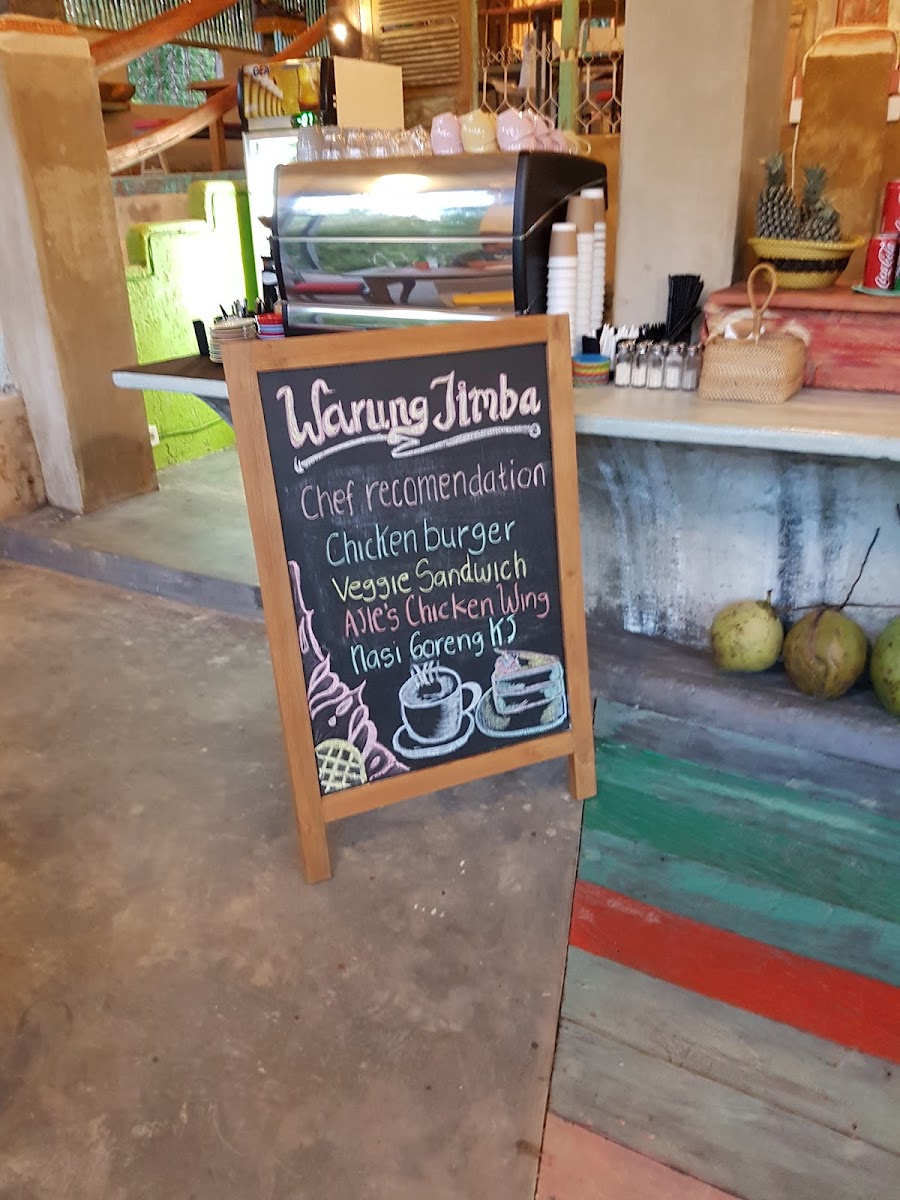 GEA
Warung Jimba
Chef recomendation
Chicken burger
Veggie Sandwich
AJie's Chicken Wing
Nasi Goreng KJ
Coca-Cola